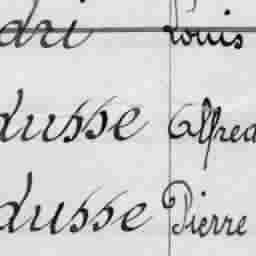 dri Louis
dusse Alfred
dusse Pierre